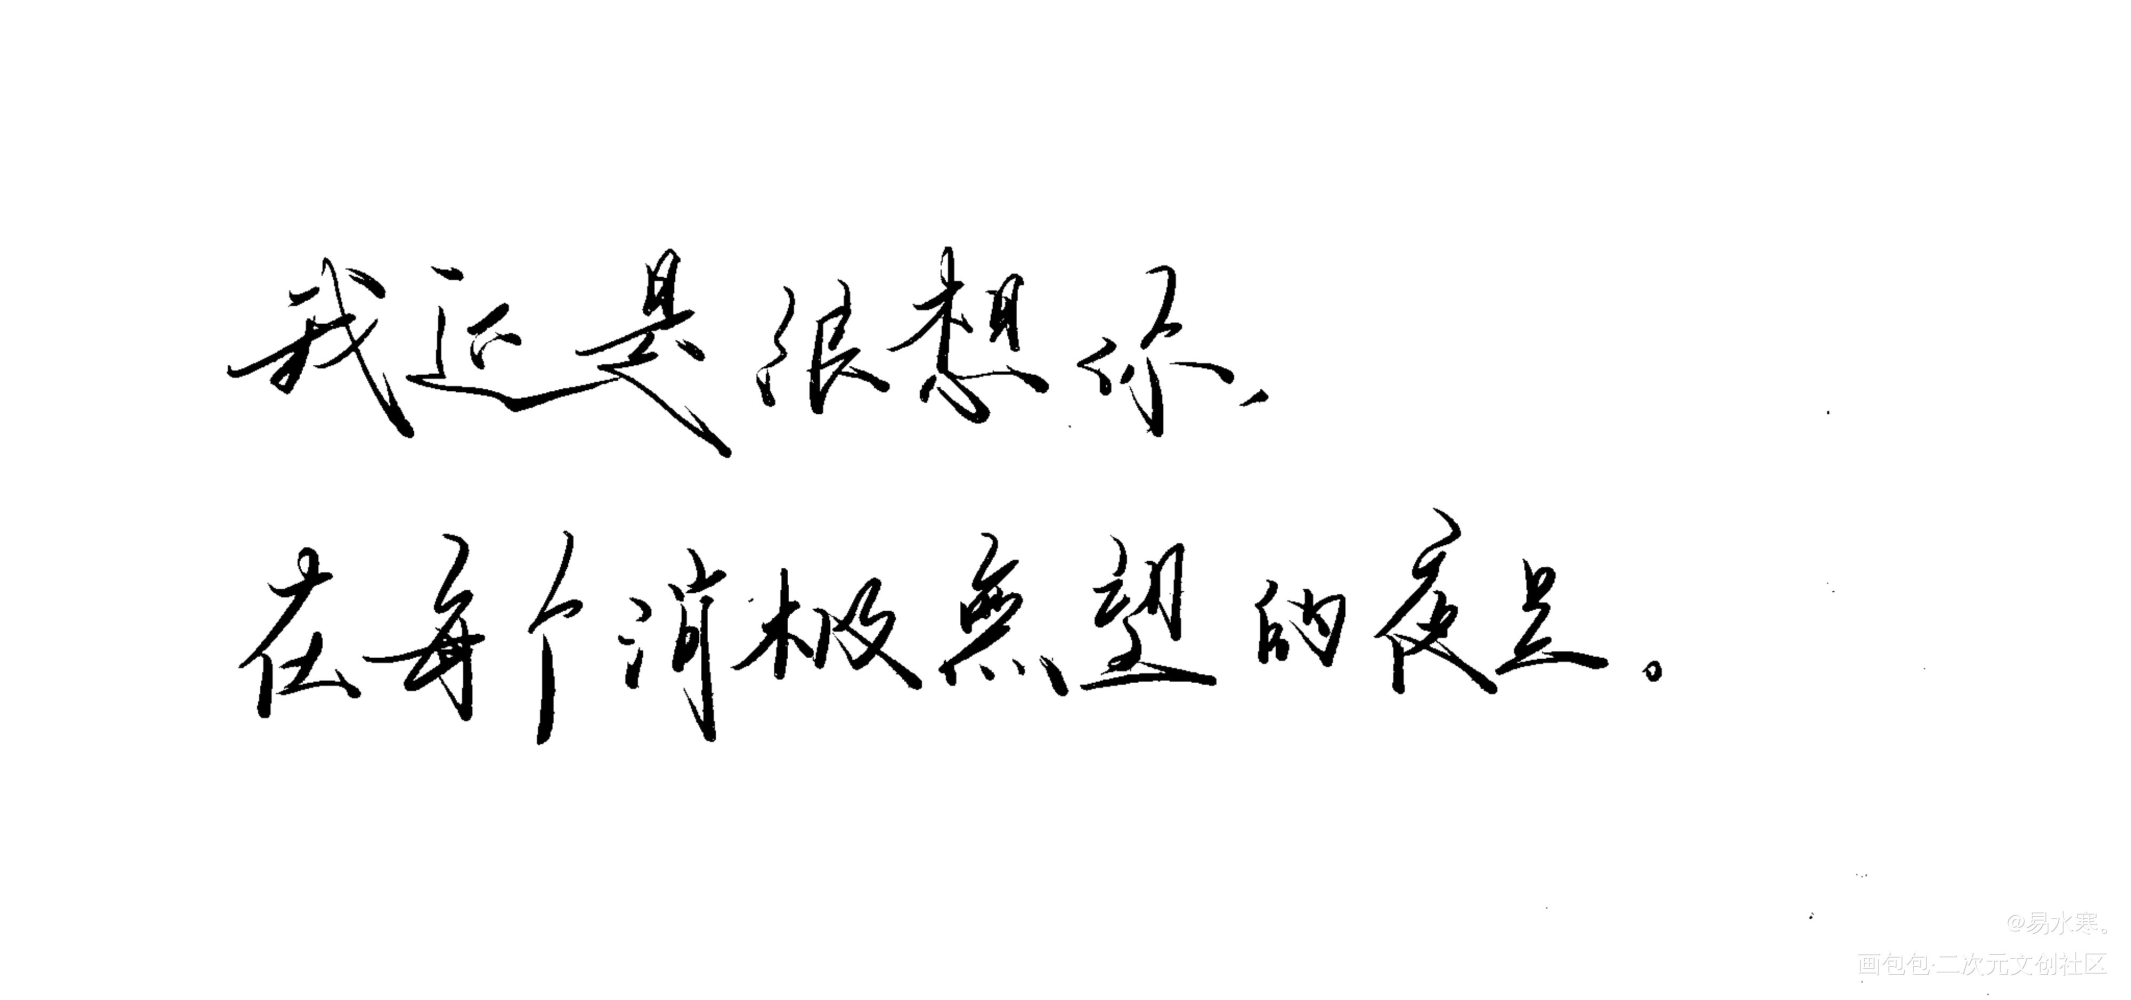 我还是很想你，
在每个消极無望的夜里。
@易水寒。
画包包·二次元文创社区